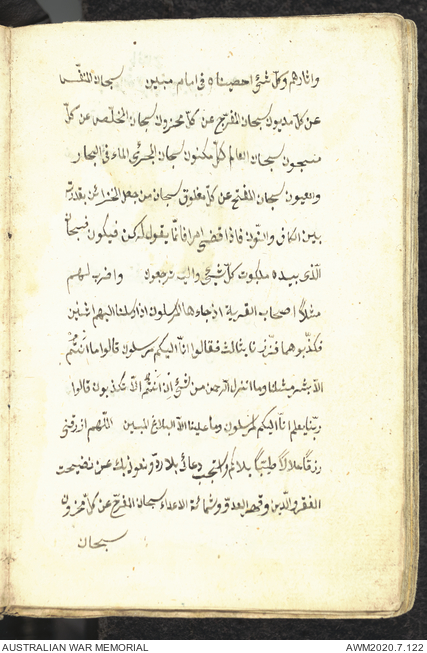 واثارهم وكل شئ احصيناه فى امام مبين سبحان المنفس
عن كل مديون سبحان المفرج عن كل محزون سبحان المخلص عن كل
مسجون سبحان العالم كل مكنون سبحان المجرى الماء فى البحار
والعيون سبحان المفتح عن كل مغلوق سبحان من جعل الخزائن بقدرته
بين الكاف والنون فاذا قضى امرا فانما يقول له كن فيكون فسبحان
الذى بيده ملكوت كل شئ واليه ترجعون واضرب لهم
مثلا اصحاب القرية اذ جاءها المرسلون اذ ارسلنا اليهم اثنين
فكذبوهما فعززنا بثالث فقالوا انا اليكم مرسلون قالوا ما انتم
الا بشر مثلنا وما انزل الرحمن من شئ ان انتم الا تكذبون قالوا
ربنا يعلم انا اليكم لمرسلون وما علينا الا البلاغ المبين اللهم ارزقنى
رزقا حلالا طيبا بلا كد واستجب دعائى بلا رد ونعوذ بك عن فضيحت
الفقر والدين وقهر العدو وشماتة الاعداء سبحان المفرج عن كل محزون
سبحان
AUSTRALIAN WAR MEMORIAL
AWM2020.7.122